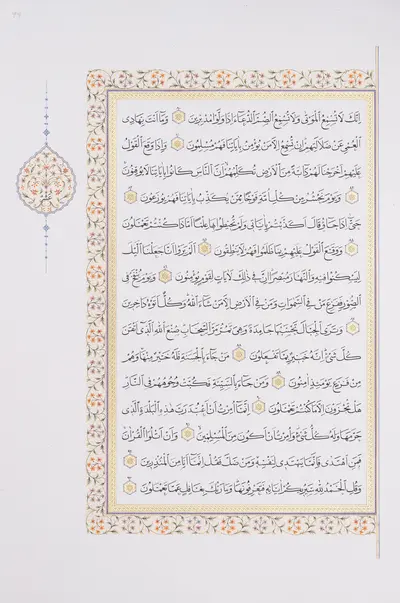 إِنَّكَ لَا تُسْمِعُ الْمَوْتَىٰ وَلَا تُسْمِعُ الصُّمَّ الدُّعَاءَ إِذَا وَلَّوْا مُدْبِرِينَ وَمَا أَنْتَ بِهَادِي
الْعُمْيِ عَنْ ضَلَالَتِهِمْ إِنْ تُسْمِعُ إِلَّا مَنْ يُؤْمِنُ بِآيَاتِنَا فَهُمْ مُسْلِمُونَ وَإِذَا وَقَعَ الْقَوْلُ
عَلَيْهِمْ أَخْرَجْنَا لَهُمْ دَابَّةً مِنَ الْأَرْضِ تُكَلِّمُهُمْ أَنَّ النَّاسَ كَانُوا بِآيَاتِنَا لَا يُوقِنُونَ
وَيَوْمَ نَحْشُرُ مِنْ كُلِّ أُمَّةٍ فَوْجًا مِمَّنْ يُكَذِّبُ بِآيَاتِنَا فَهُمْ يُوزَعُونَ
حَتَّىٰ إِذَا جَاءُوا قَالَ أَكَذَّبْتُمْ بِآيَاتِي وَلَمْ تُحِيطُوا بِهَا عِلْمًا أَمَّاذَا كُنْتُمْ تَعْمَلُونَ
وَوَقَعَ الْقَوْلُ عَلَيْهِمْ بِمَا ظَلَمُوا فَهُمْ لَا يَنْطِقُونَ أَلَمْ يَرَوْا أَنَّا جَعَلْنَا اللَّيْلَ
لِيَسْكُنُوا فِيهِ وَالنَّهَارَ مُبْصِرًا إِنَّ فِي ذَٰلِكَ لَآيَاتٍ لِقَوْمٍ يُؤْمِنُونَ وَيَوْمَ يُنْفَخُ فِي
الصُّورِ فَفَزِعَ مَنْ فِي السَّمٰوَاتِ وَمَنْ فِي الْأَرْضِ إِلَّا مَنْ شَاءَ اللَّهُ وَكُلٌّ أَتَوْهُ دَاخِرِينَ
وَتَرَى الْجِبَالَ تَحْسَبُهَا جَامِدَةً وَهِيَ تَمُرُّ مَرَّ السَّحَابِ صُنْعَ اللَّهِ الَّذِي أَتْقَنَ
كُلَّ شَيْءٍ إِنَّهُ خَبِيرٌ بِمَا تَفْعَلُونَ مَنْ جَاءَ بِالْحَسَنَةِ فَلَهُ خَيْرٌ مِنْهَا وَهُمْ
مِنْ فَزَعٍ يَوْمَئِذٍ آمِنُونَ وَمَنْ جَاءَ بِالسَّيِّئَةِ فَكُبَّتْ وُجُوهُهُمْ فِي النَّارِ
هَلْ تُجْزَوْنَ إِلَّا مَا كُنْتُمْ تَعْمَلُونَ إِنَّمَا أُمِرْتُ أَنْ أَعْبُدَ رَبَّ هَٰذِهِ الْبَلْدَةِ الَّذِي
حَرَّمَهَا وَلَهُ كُلُّ شَيْءٍ وَأُمِرْتُ أَنْ أَكُونَ مِنَ الْمُسْلِمِينَ وَأَنْ أَتْلُوَا الْقُرْآنَ
فَمَنِ اهْتَدَىٰ فَإِنَّمَا يَهْتَدِي لِنَفْسِهِ وَمَنْ ضَلَّ فَقُلْ إِنَّمَا أَنَا مِنَ الْمُنْذِرِينَ
وَقُلِ الْحَمْدُ لِلَّهِ سَيُرِيكُمْ آيَاتِهِ فَتَعْرِفُونَهَا وَمَا رَبُّكَ بِغَافِلٍ عَمَّا تَعْمَلُونَ